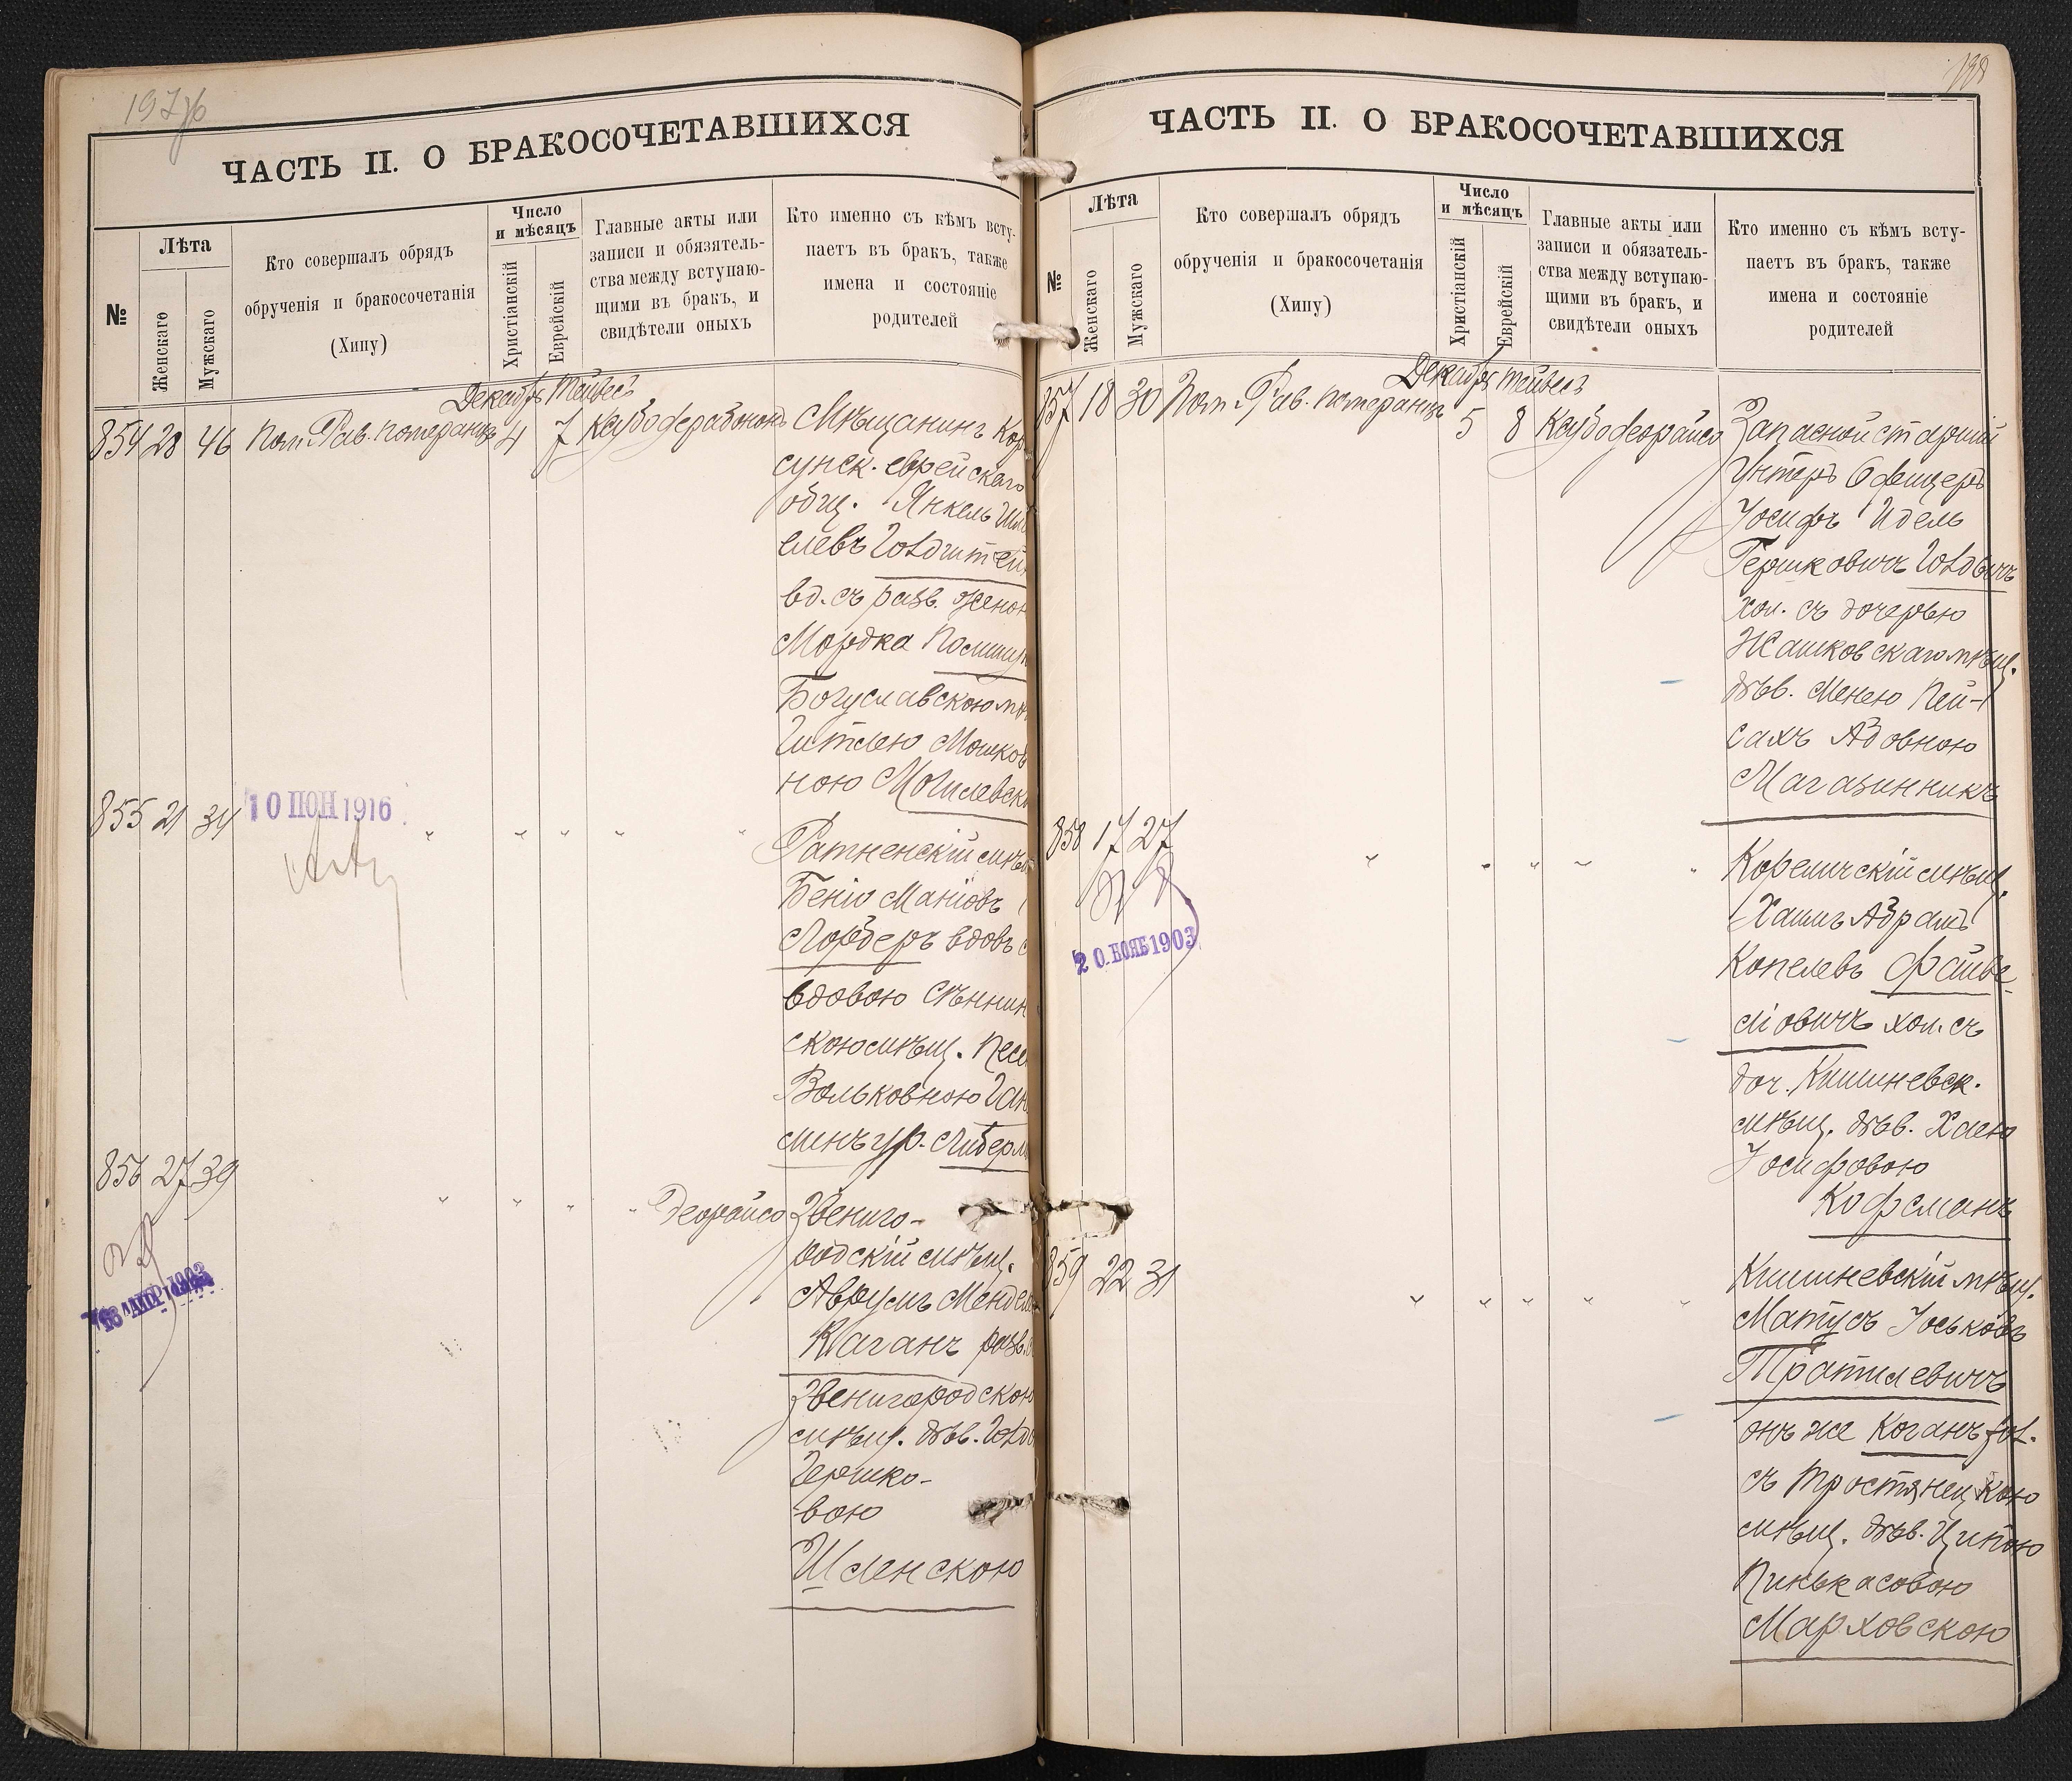 197об
ЧАСТЬ II. О БРАКОСОЧЕТАВШИХСЯ
№
Лѣта
Женскаго
Мужскаго
Кто совершалъ обрядъ
обрученія и бракосочетанія
(Хипу)
Число
и мѣсяцъ
Христіанскій
Еврейскій
Главные акты или
записи и обязятель-
ства между вступаю-
щими въ бракъ, и
свидѣтели оныхъ
Кто именно съ кѣмъ всту-
паетъ въ бракъ, также
имена и состояніе
родителей
Декабрь Тейвесъ
854 28 46 Пом. Рав. Померанцъ 4 7
Мѣщанинъ Кор
сунск. еврейскаго
общ. Янкель
елевъ Голдштей
вд. съ разв. женою
Мордка
Богуславскою
Гитлею Мошков
ною Могилевск
855 21 34
10 ІЮН 1916
Ратненскій мѣщ
Беніо Маніовъ
Лордеръ вдовъ с
вдовою Сѣннин
скою мѣщ. Песе
Вольковною
ур. Либерм
856 27 39
Деорайсо
Звениго-
родскій мѣщ.
Аврумъ Мендел
Каганъ разв. с
Звенигородскою
мѣщ. дѣв. Голд
Гершко-
вою
Шленскою
198
ЧАСТЬ II. О БРАКОСОЧЕТАВШИХСЯ
№
Лѣта
Женскаго
Мужскаго
Кто совершалъ обрядъ
обрученія и бракосочетанія
(Хипу)
Число
и мѣсяцъ
Христіанскій
Еврейскій
Главные акты или
записи и обязатель-
ства между вступаю-
щими въ бракъ, и
свидѣтели оныхъ
Кто именно съ кѣмъ всту-
паетъ въ бракъ, также
имена и состояніе
родителей
Декабрь Тейвесъ
857 18 30 Пом. Рав. Померанцъ 5 8 Каубодеорайсо
Запасной старшій
Унтеръ Офицеръ
Іосифъ Идель
Гершковичъ
хол. съ дочерью
Жашковскаго мѣщ.
дѣв. Менею Пей-
сахъ Адовною
Магазинникъ
858 17 27
20 НОЯБ 1903
Кореличскій мѣщ.
Хаимъ Абрамъ
Копелевъ Файве-
ліовичъ хол. съ
доч. Кишиневск.
мѣщ. дѣв. Хаею
Іосифовою
Кофманъ
859 22 31
Кишиневскій мѣщ.
Матусъ Іоськовъ
Тратилевичъ
онъ же Коганъ хол.
съ Тростянецкою
мѣщ. дѣв. Ципою
Пинькасовою
Марховскою